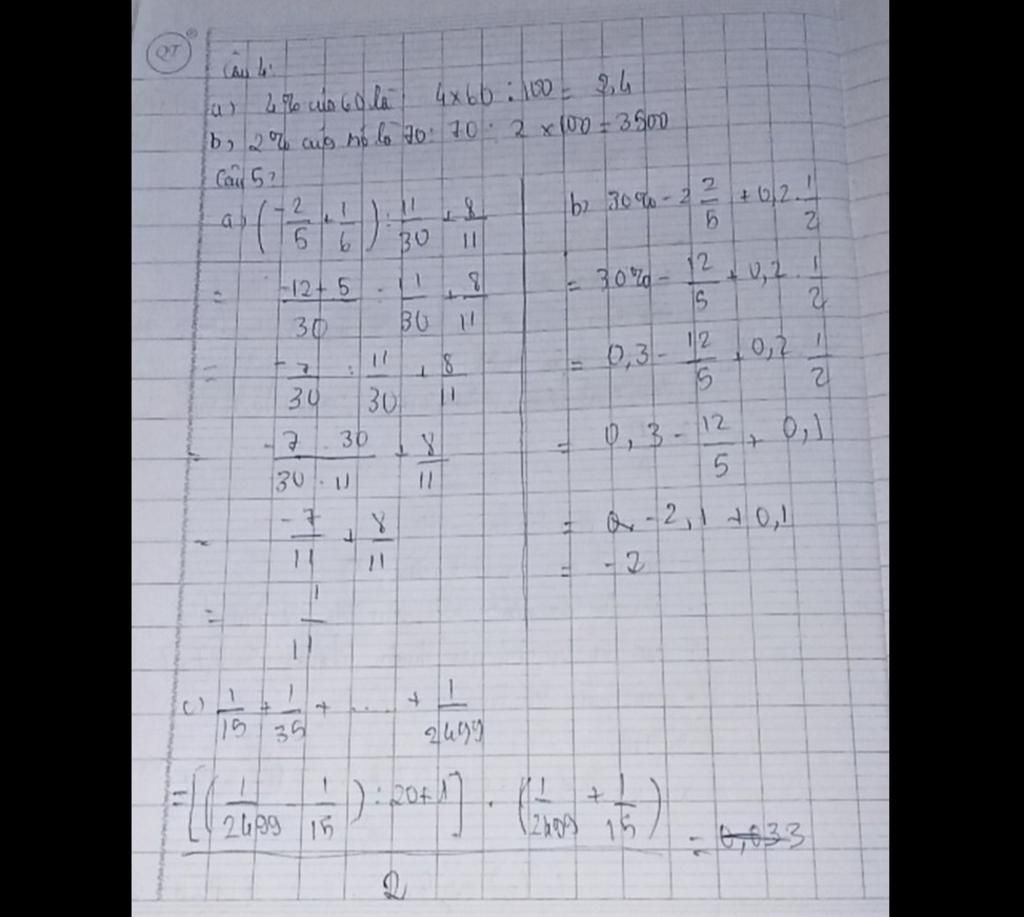 QT
Câu 4:
a) 4% của 60 là 4x60 : 100 = 2,4
b) 2% của nó là 70: 70 : 2 x 100 = 3500
Câu 5:
a) (-2/5 + 1/6) : 11/30 + 8/11
= -12+5/30 : 11/30 + 8/11
= -7/30 : 11/30 + 8/11
= -7 . 30/30 . 11 + 8/11
= -7/11 + 8/11
= 1/11
b) 30% - 2 2/5 + 0,2 . 1/2
= 30% - 12/5 + 0,2 . 1/2
= 0,3 - 12/5 + 0,2 1/2
= 0,3 - 12/5 + 0,1
= -2,1 + 0,1
= -2
c) 1/15 + 1/35 + .... + 1/2499
= [(1/2499 - 1/15) : 20 + 1] . (1/2499 + 1/15) / 2 = 0,033